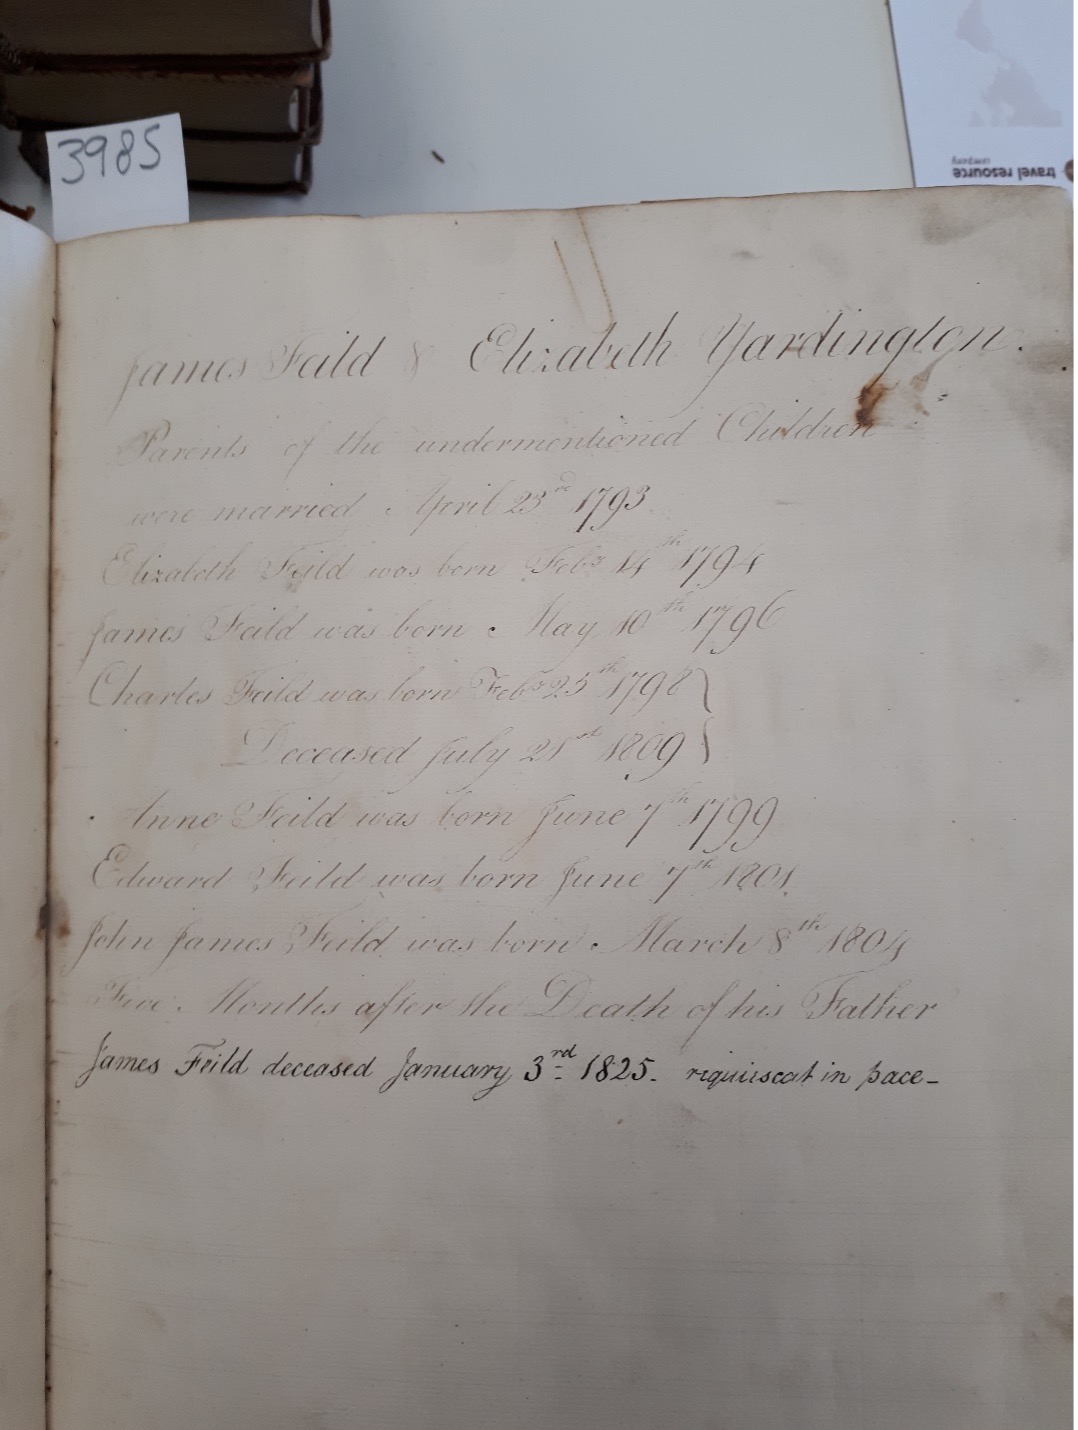 3985
travel resource
company
James Feild & Elizabeth Yardington.
Parents of the undermentioned Children
were married April 23rd 1793
Elizabeth Feild was born Feby 14th 1794
James Feild was born May 10th 1796
Charles Feild was born Feby 25th 1798
Deceased July 21st 1809
Anne Feild was born June 7th 1799
Edward Feild was born June 7th 1801.
John James Feild was born March 8th 1804
Five Months after the Death of his Father
James Feild deceased January 3rd 1825. requiescat in pace-